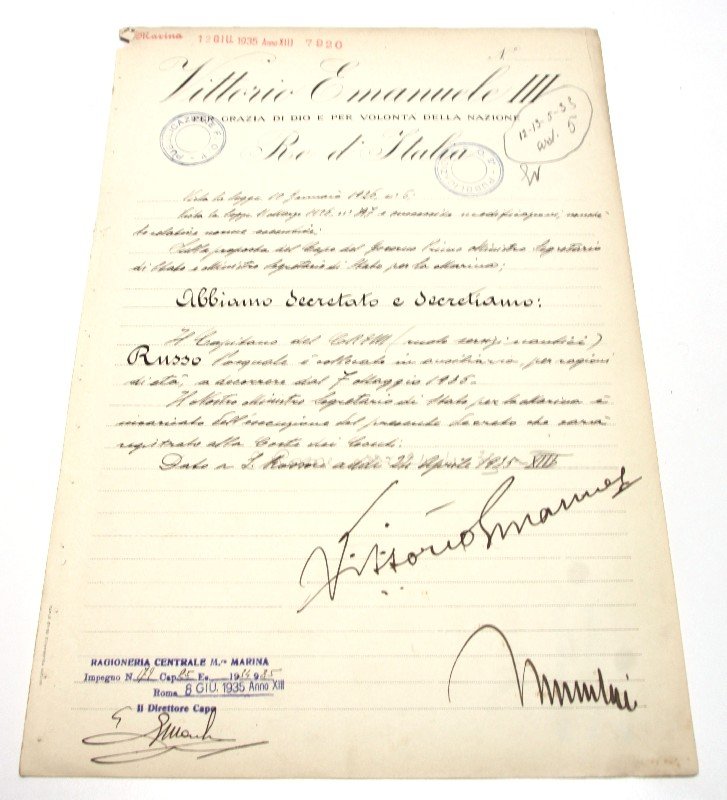 Marina 12 GIU. 1935 Anno XIII 7920
N°
Vittorio Emanuele III
PER GRAZIA DI DIO E PER VOLONTÀ DELLA NAZIONE
12-13-5-35
Re d'Italia
Vista la legge 10 Gennaio 1926, n° 6;
Vista la legge 11 Marzo 1926, n° 397 e successive modificazioni, nonchè
le relative norme esecutive;
Sulla proposta del Capo del Governo Primo Ministro Segretario
di Stato e Ministro Segretario di Stato per la Marina;
Abbiamo Decretato e Decretiamo:
Il Capitano del C.R.E.M. (ruolo servizi nautici)
RUSSO Pasquale è collocato in ausiliaria per ragioni
di età, a decorrere dal 7 Maggio 1935.
Il Nostro Ministro Segretario di Stato per la Marina è
incaricato dell'esecuzione del presente decreto che sarà
registrato alla Corte dei Conti.
Dato a S. Rossore addì 24 Aprile 1935 XIII
Vittorio Emanuele
Mussolini
RAGIONERIA CENTRALE M.re MARINA
Impegno N. 179 Cap. 25 Es. 1934 935
Roma 8 GIU. 1935 Anno XIII
Il Direttore Capo